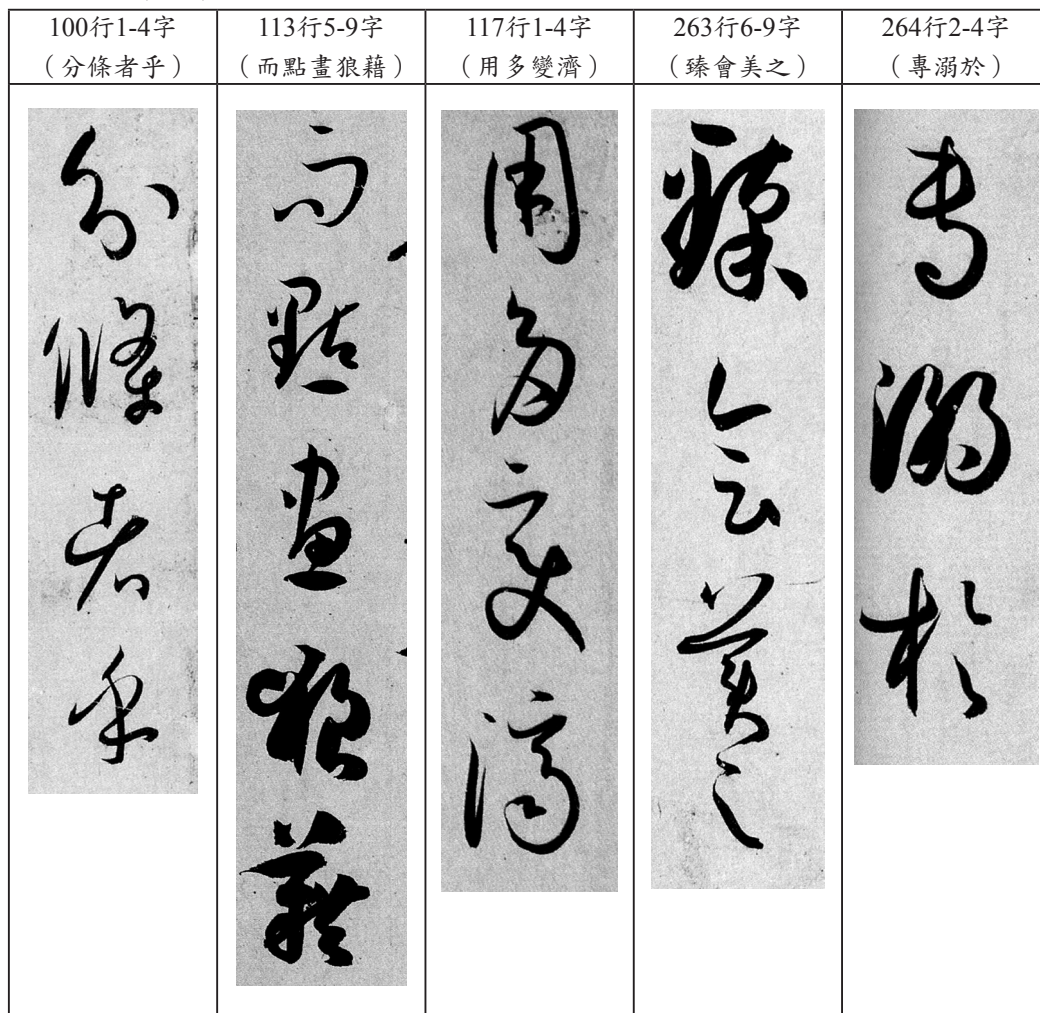 100行1-4字
（分條者乎）
113行5-9字
（而點畫狼藉）
117行1-4字
（用多變濟）
263行6-9字
（臻會美之）
264行2-4字
（專溺於）
分條者乎
而點畫狼藉
用多變濟
臻會美之
專溺於